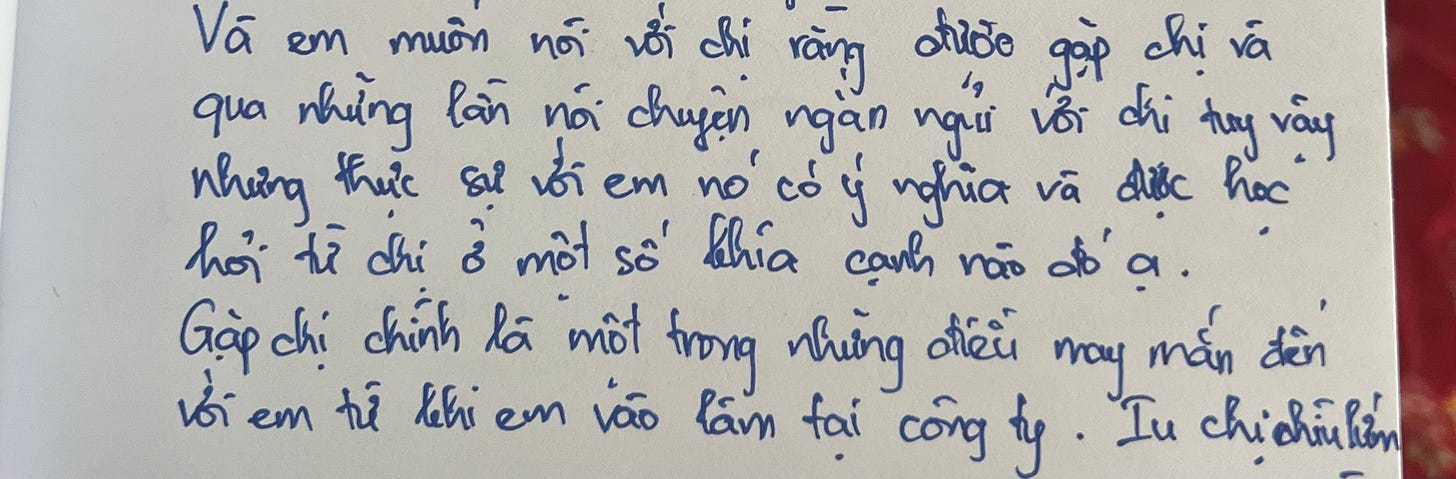 Và em muốn nói với chị rằng được gặp chị và
qua những lần nói chuyện ngắn ngủi với chị tuy vậy
nhưng thực sự với em nó có ý nghĩa và được học
hỏi từ chị ở một số khía cạnh nào đó ạ.
Gặp chị chính là một trong những điều may mắn đến
với em từ khi em vào làm tại công ty. Iu chị nhìu lắm